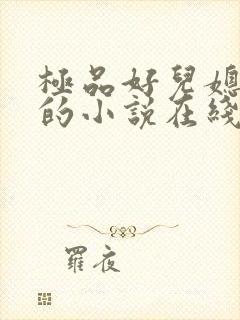 極品好兒媳
的小說在綫
羅夜